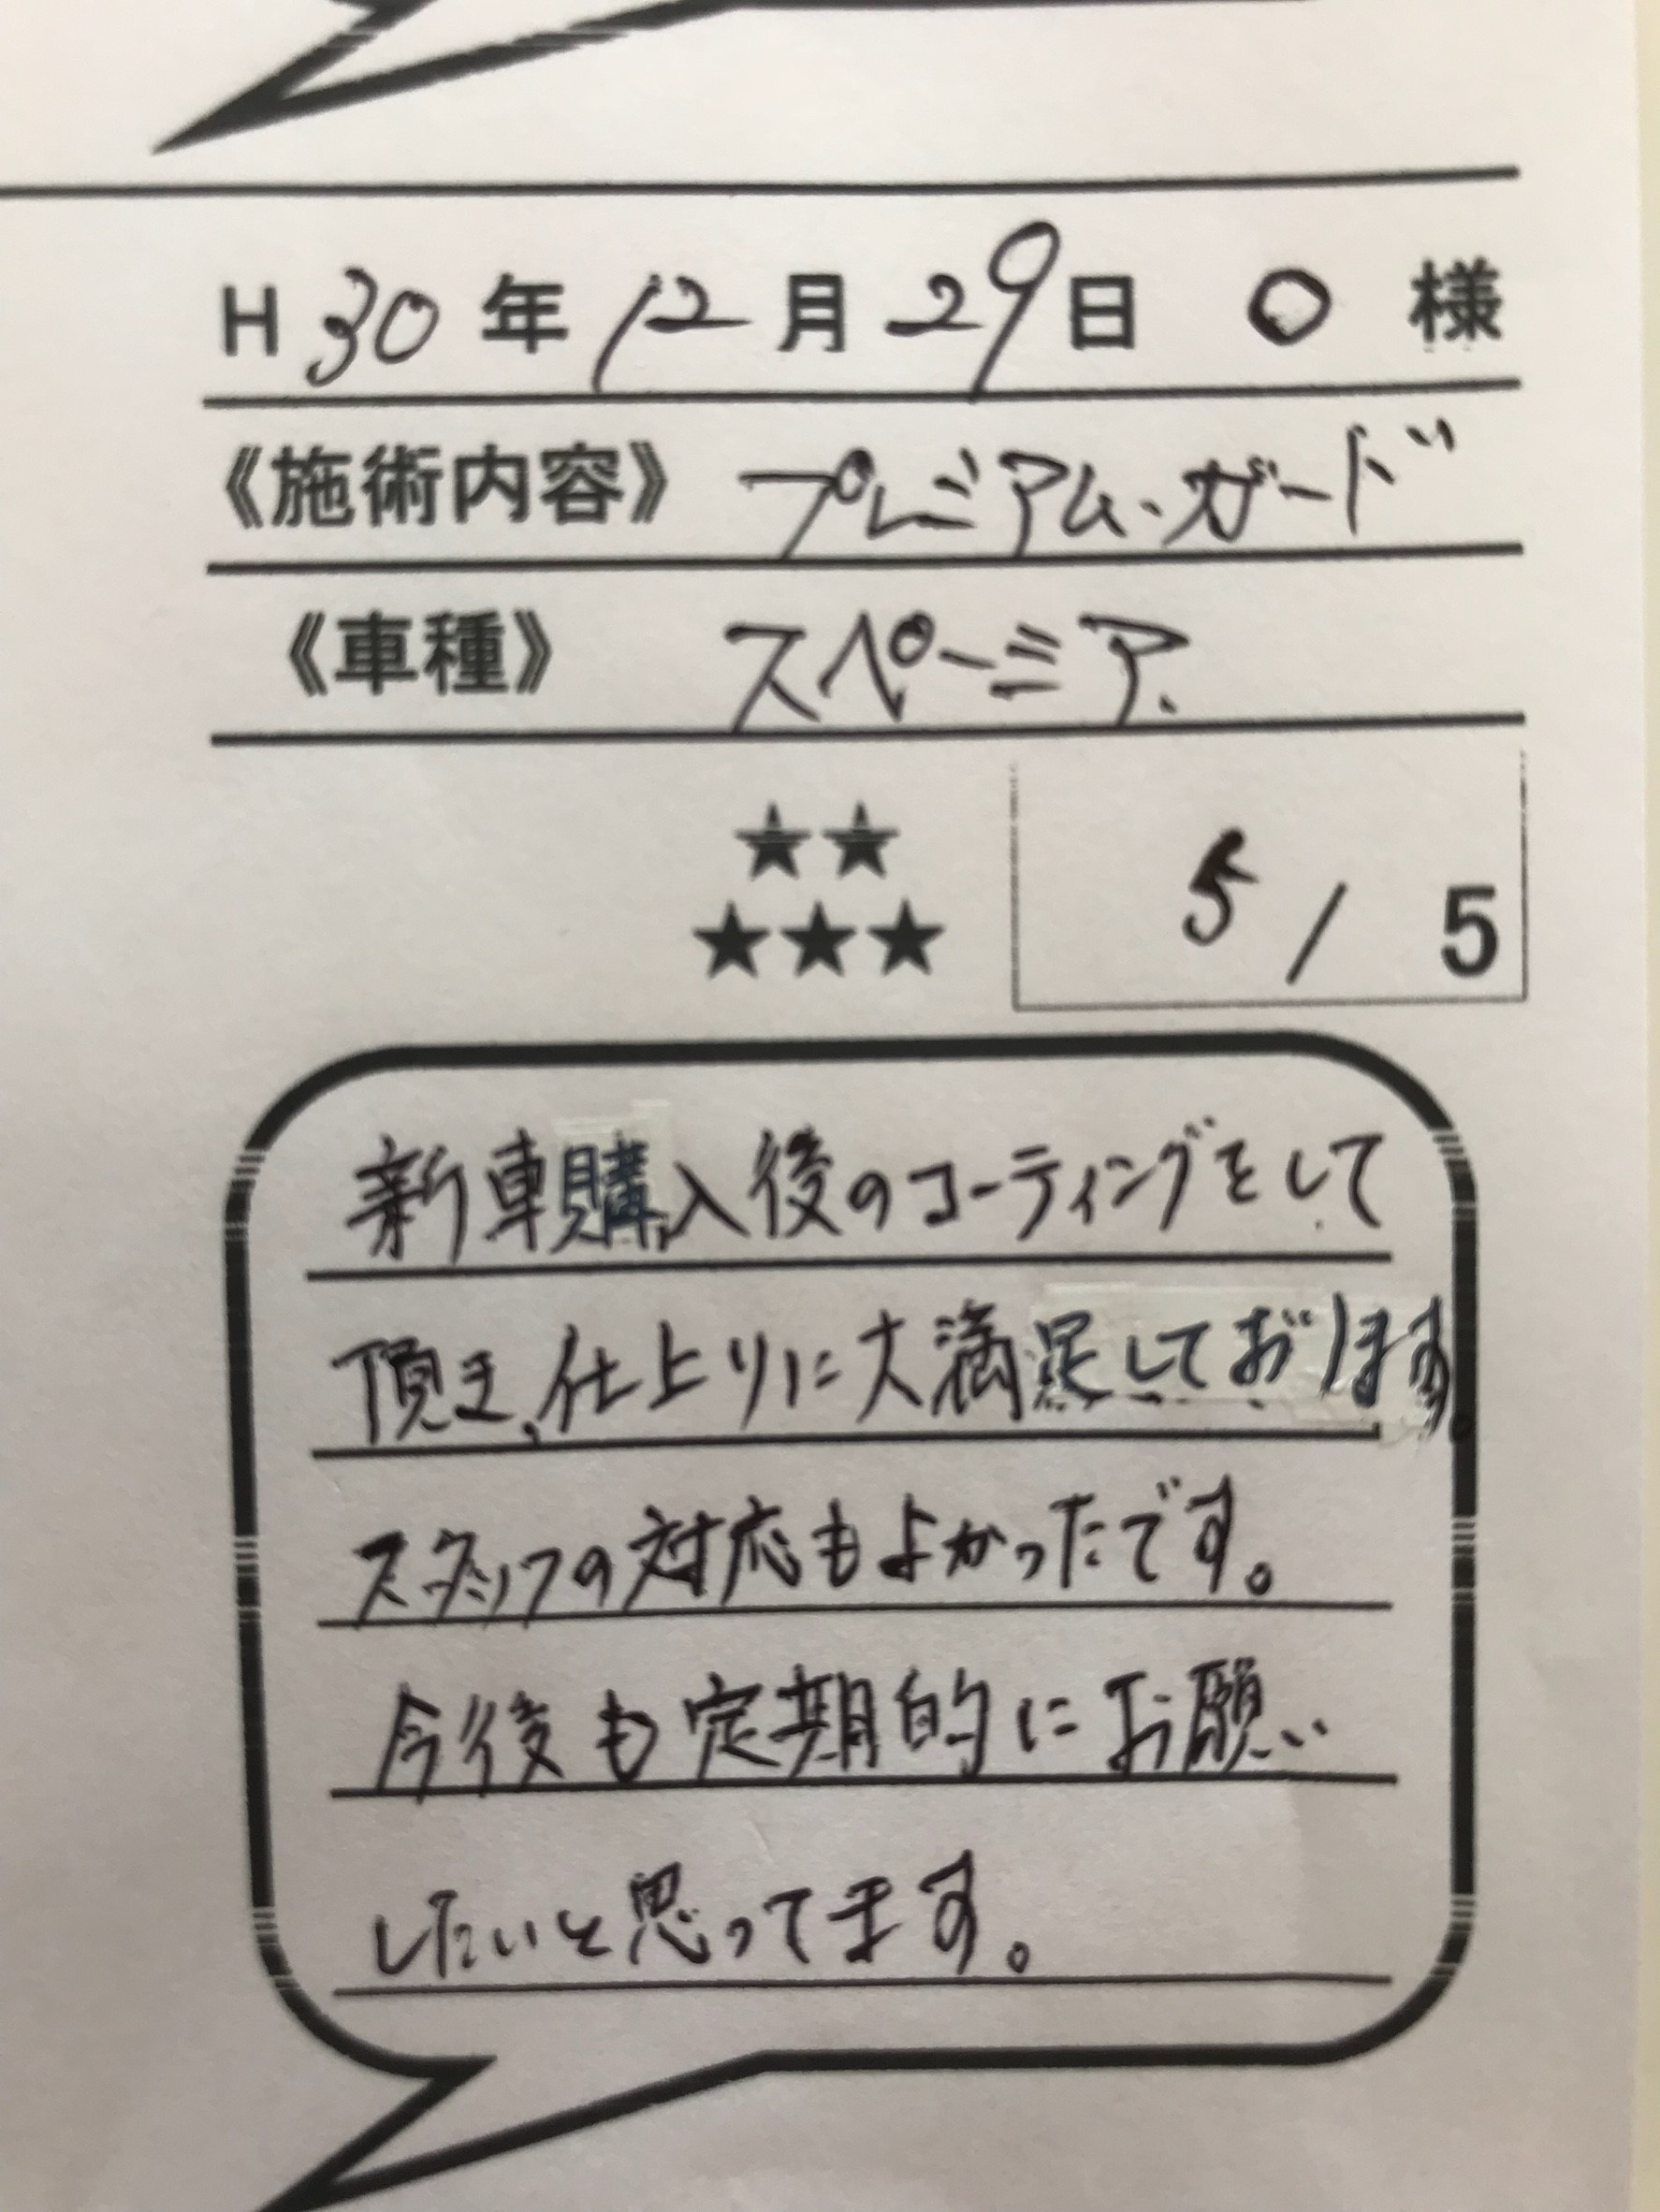 H 30 年 12 月 29 日 O 様
《施術内容》 プレミアム・ガード
《車種》 スペーシア.
★★
★★★
5 / 5
新車購入後のコーティングをして
頂き、仕上りに大満足しております。
スタッフの対応もよかったです。
今後も定期的にお願い
したいと思ってます。